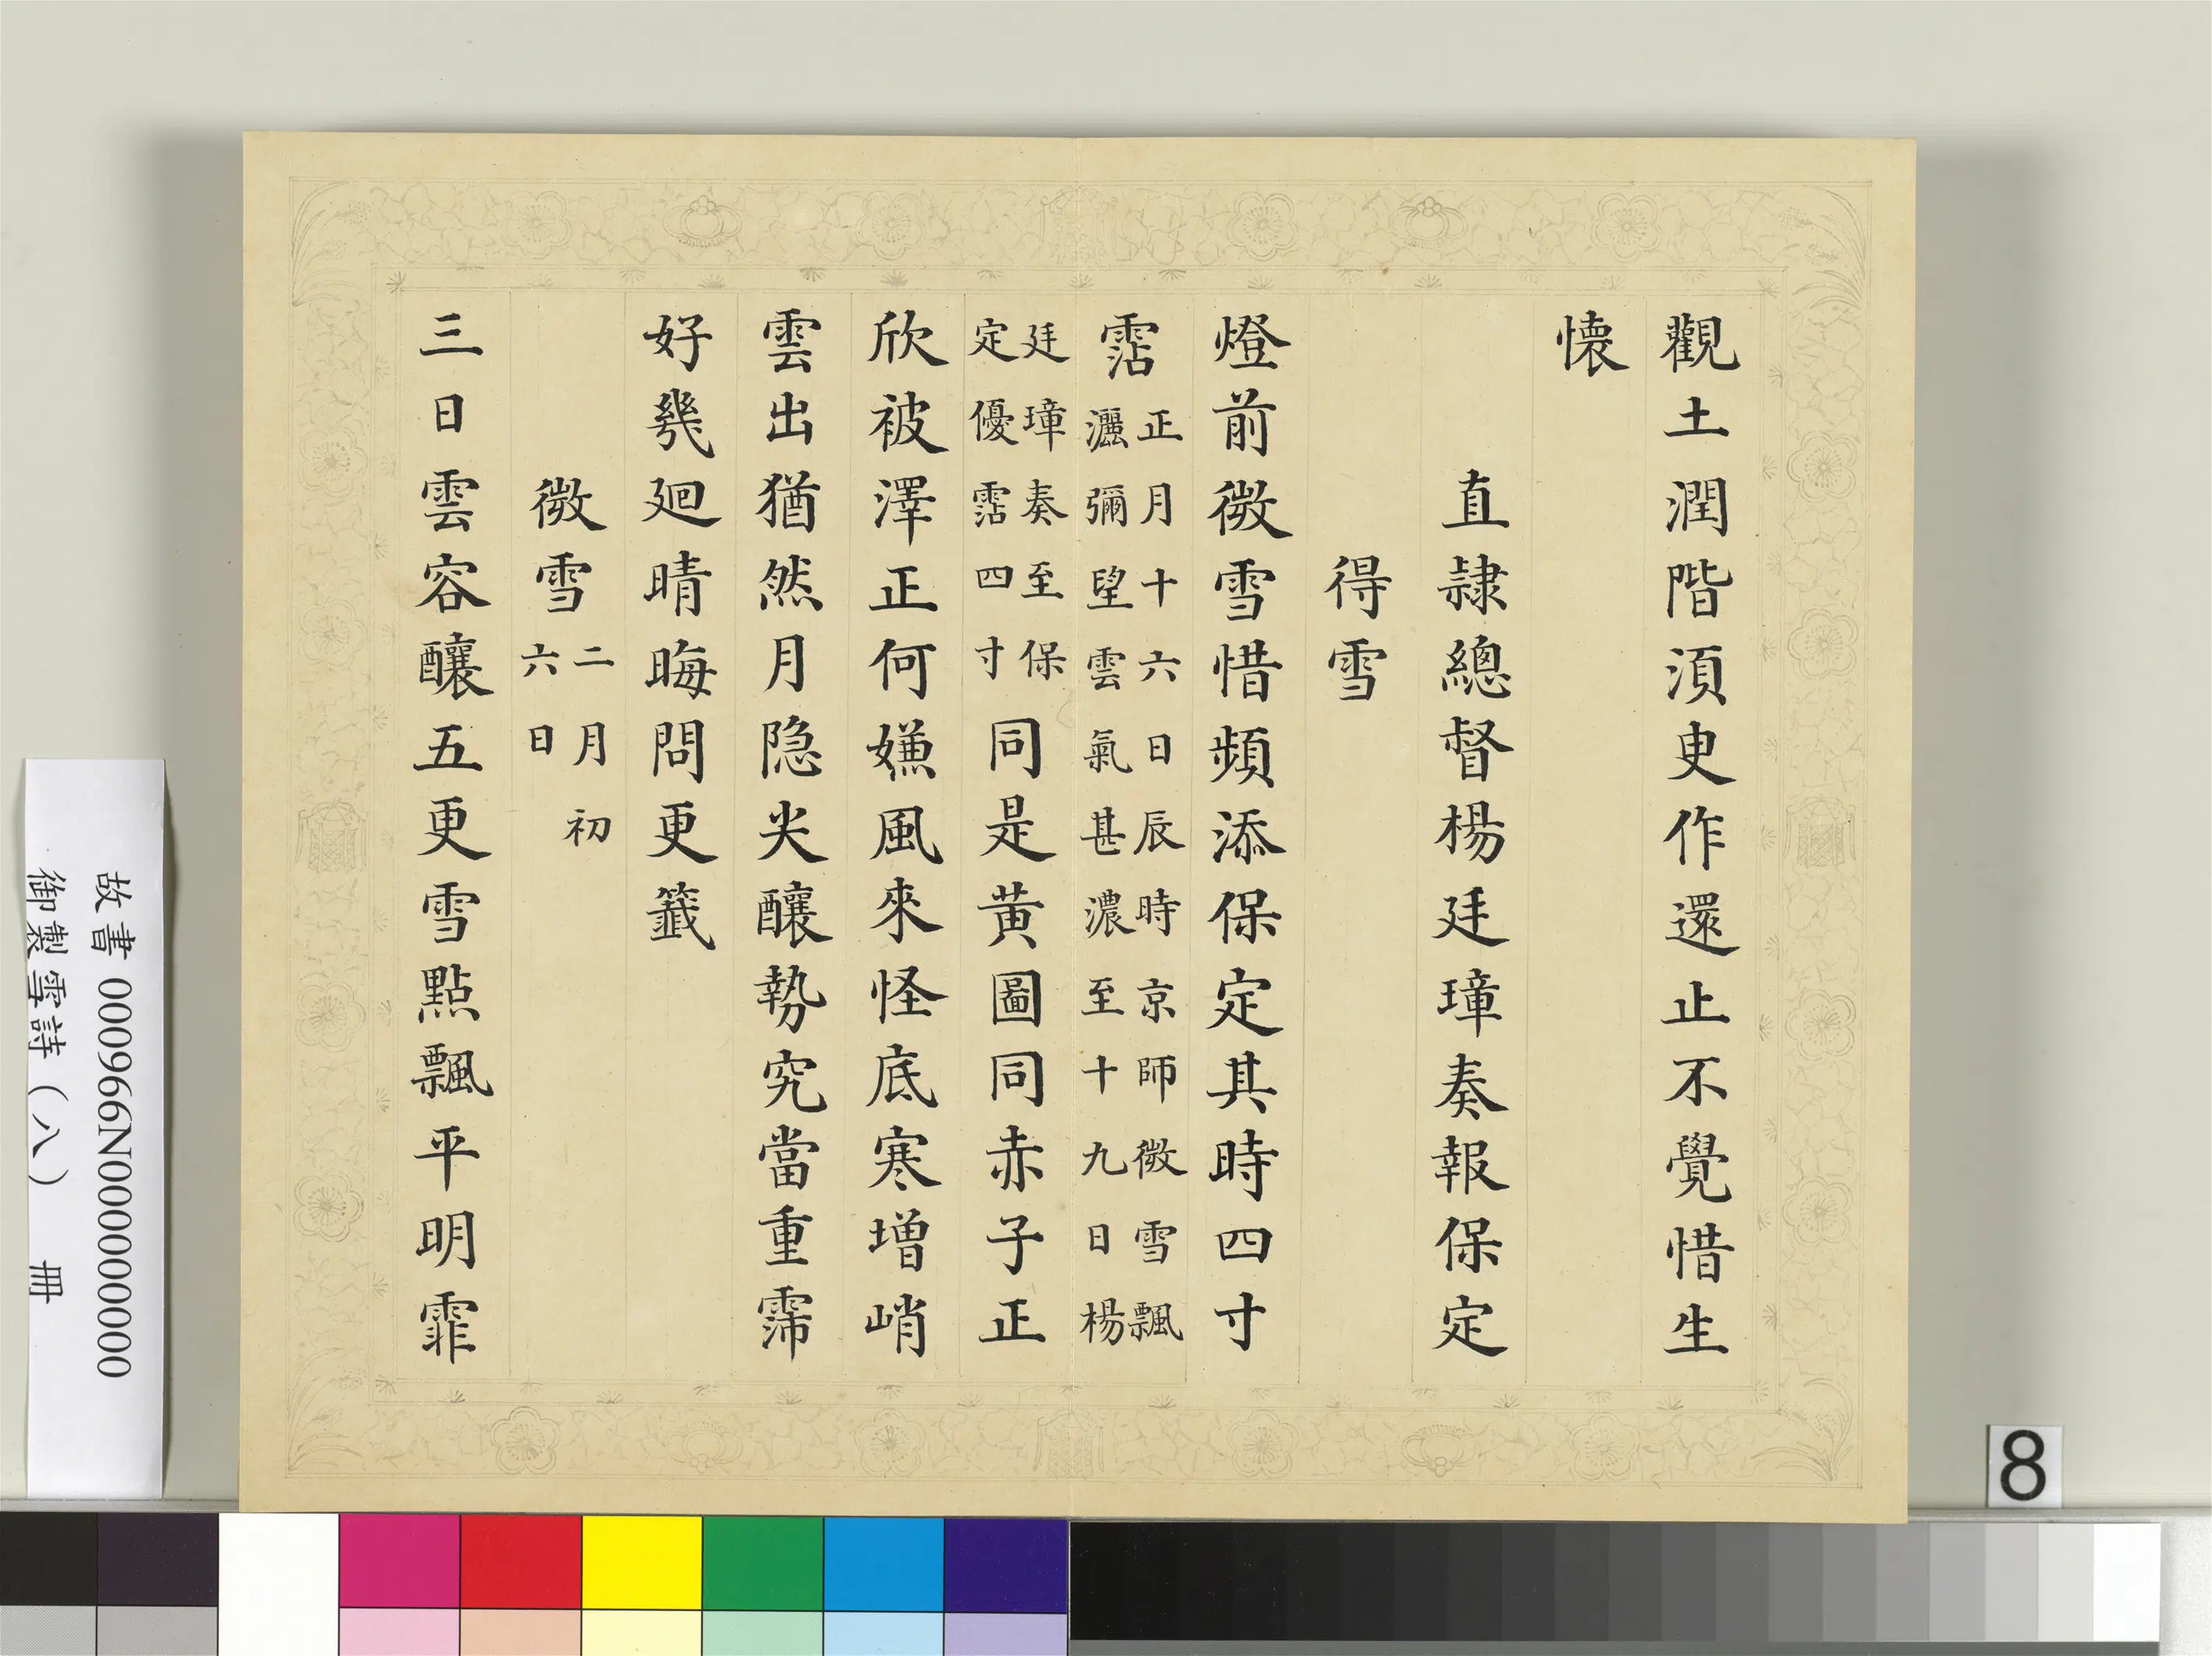 觀土潤階湏臾作還止不覺惜生
懐
直隷總督楊廷璋奏報保定
得雪
燈前微雪惜頻添保定其時四寸
霑
正月十六日辰時京師微雪飄
灑彌望雲氣甚濃至十九日楊
廷璋奏至保
定優霑四寸
同是黄圖同赤子正
欣被澤正何嫌風來怪底寒增峭
雲出猶然月隐尖釀勢究當重霈
好㡬廻晴晦問更籤
微雪
二月初
六日
三日雲容釀五更雪點飄平明霏
故書 000966N000000000
御製雪詩(八) 冊
8